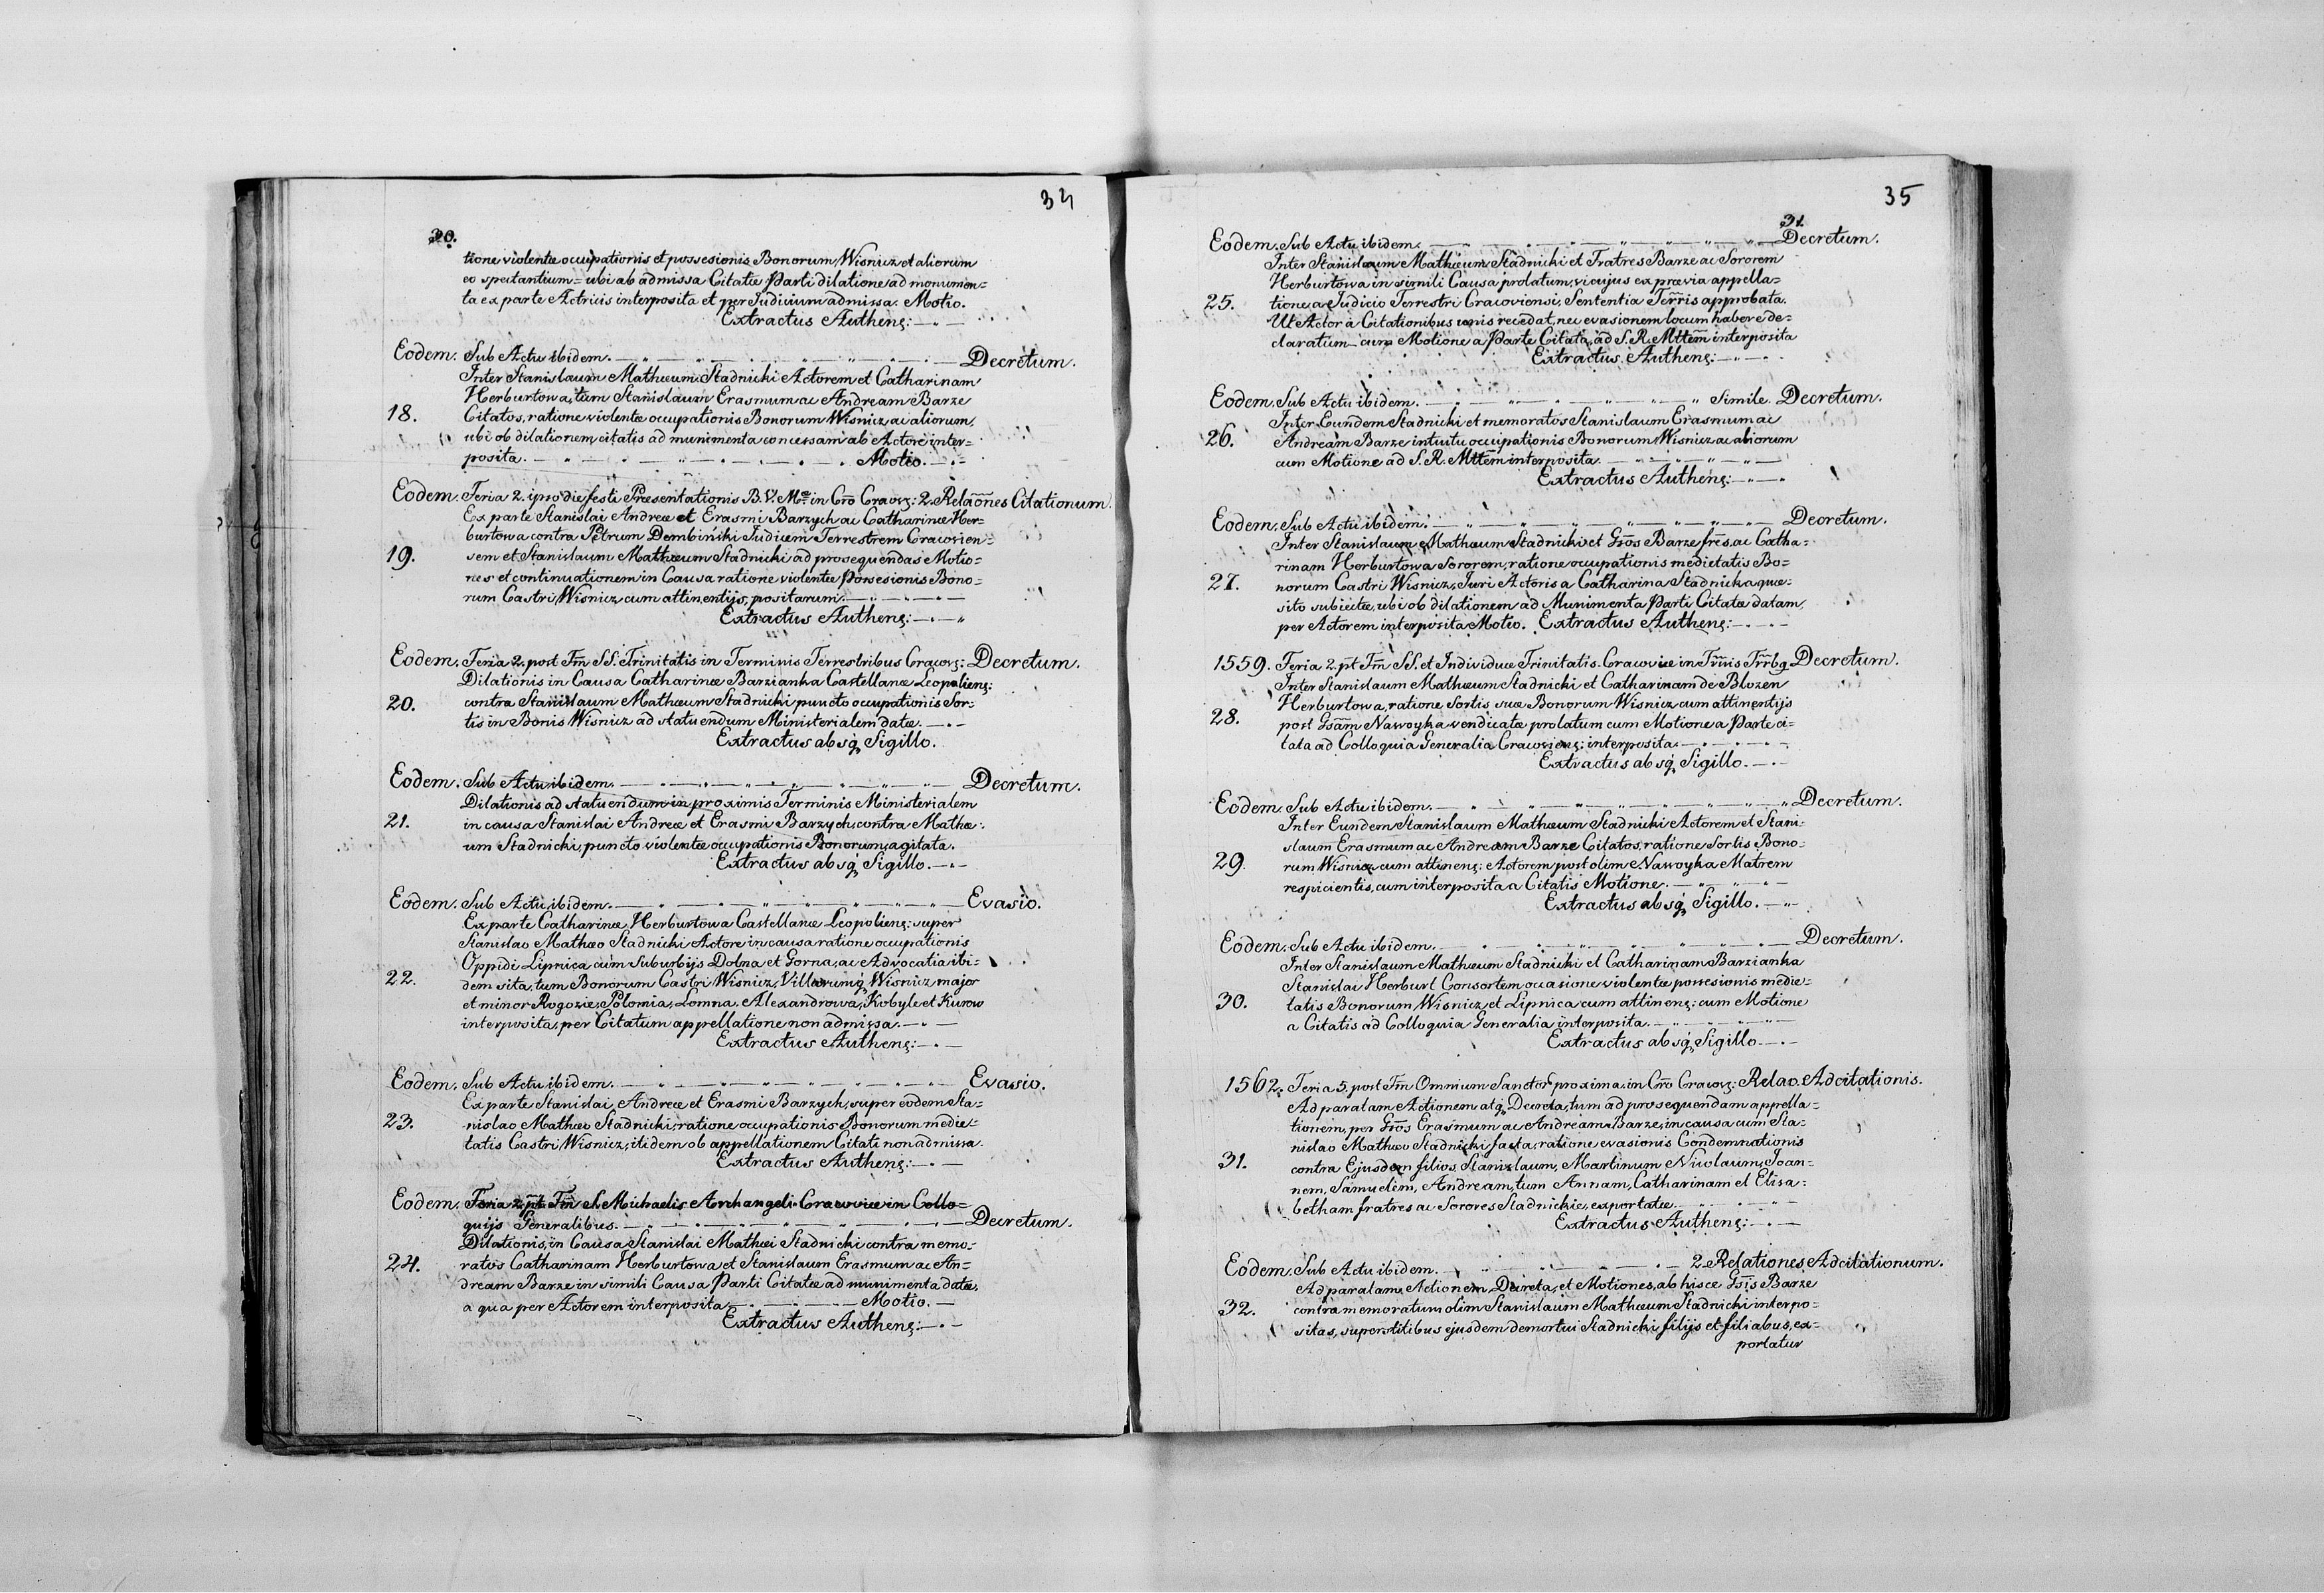 34
30.
tione violentæ occupationis et possesionis Bonorum Wisnicz et aliorum
eo spectantium = ubi ab admissa Citatæ Parti dilatione ad monumen=
ta ex parte Actricis interposita et per Judicium admissa. Motio.
Extractus Authenç:
Eodem. Sub Actu ibidem. Decretum.
Inter Stanislaum Mathæum Stadnicki Actorem et Catharinam
Herburtowa, tum Stanislaum Erasmum ac Andream Barze
18. Citatos, ratione violentæ occupationis Bonorum Wisnicz ac aliorum,
ubi ob dilationem citatis ad munimenta concessam ab Actore inter=
posita. Motio.
Eodem. Feria 2. ipso die festi Præsentationis B. V. Mæ in Crō Cracoç: 2. Relaōnes Citationum.
Ex parte Stanislai Andreæ et Erasmi Barzych ac Catharinæ Her=
burtowa contra Petrum Dembiński Judicem Terrestrem Cracovien=
19. sem et Stanislaum Mathæum Stadnicki ad prosequendas Motio=
nes et continuationem in Causa ratione violentæ Possesionis Bono=
rum Castri Wisnicz cum attinentijs, positarum.
Extractus Authenç:
Eodem. Feria 2. post Fm̄ SS. Trinitatis in Terminis Terrestribus Cracovç: Decretum.
Dilationis in Causa Catharinæ Barzianka Castellanæ Leopolienç:
20. contra Stanislaum Mathæum Stadnicki puncto occupationis Sor=
tis in Bonis Wisnicz ad statuendum Ministerialem datæ.
Extractus absq, Sigillo.
Eodem. Sub Actu ibidem. Decretum.
Dilationis ad statuendum in proximis Terminis Ministerialem
21. in causa Stanislai Andreæ et Erasmi Barzych contra Mathæ=
um Stadnicki, puncto violentæ occupationis Bonorum agitata.
Extractus absq, Sigillo.
Eodem. Sub Actu ibidem. Evasio.
Ex parte Catharinæ Herburtowa Castellanæ Leopolienç: super
Stanislao Mathæo Stadnicki Actore in causa ratione occupationis
Oppidi Lipnica cum Suburbijs Dolna et Gorna, ac Advocatia ibi=
22. dem sita, tum Bonorum Castri Wisnicz, Villarumq, Wisnicz major
et minor Rogozie, Polomia, Lomna, Alexandrowa, Kobyle et Kurow
interposita, per Citatum appellatione non admissa.
Extractus Authenç:
Eodem. Sub Actu ibidem. Evasio.
Ex parte Stanislai, Andreæ et Erasmi Barzych, super eodem Sta=
23. nislao Mathæo Stadnicki, ratione occupationis Bonorum medie=
tatis Castri Wisnicz, itidem ob appellationem Citati non admissa.
Extractus Authenç:
Eodem. Feria 2. pt̄ Fm̄ S. Michaelis Archangeli Cracoviæ in Collo=
quijs Generalibus. Decretum.
Dilationis, in Causa Stanislai Mathæi Stadnicki contra memo=
24. ratos Catharinam Herburtowa et Stanislaum Erasmum ac An=
dream Barze in simili Causa Parti Citatæ ad munimenta datæ,
a qua per Actorem interposita Motio.
Extractus Authenç:
35
31.
Eodem. Sub Actu ibidem. Decretum.
Inter Stanislaum Mathæum Stadnicki et Fratres Barze ac Sororem
Herburtowa in simili Causa prolatum, vi cujus ex prævia appella=
25. tione, a Judicio Terrestri Cracoviensi, Sententia Ter̄ris approbata.
Ut Actor a Citationibus recedat, nec evasionem locum habere de=
claratum cum Motione a Parte Citata, ad S. R. Mttēm interposita
Extractus Authenç:
Eodem. Sub Actu ibidem. Simile. Decretum.
Inter Eundem Stadnicki et memoratos Stanislaum Erasmum ac
26. Andream Barze intuitu occupationis Bonorum Wisnicz ac aliorum
cum Motione ad S. R. Mttēm interposita.
Extractus Authenç:
Eodem. Sub Actu ibidem. Decretum.
Inter Stanislaum Mathæum Stadnicki et Gsōs Barze frēs, ac Catha=
rinam Herburtowa Sororem, ratione occupationis medietatis Bo=
27. norum Castri Wisnicz, Juri Actoris a Catharina Stadnicka quæ=
sito subiectæ, ubi ob dilationem ad Munimenta Parti Citatæ datam,
per Actorem interposita Motio. Extractus Authenç:
1559. Feria 2. pt̄ Fm̄ SS. et Individuæ Trinitatis. Cracoviæ in Tr̄nis Tr̄rbq Decretum.
Inter Stanislaum Mathæum Stadnicki et Catharinam de Blozen
Herburtowa, ratione Sortis suæ Bonorum Wisnicz cum attinentijs
28. post Gsām Nawoyka vendicatæ prolatum cum Motione a Parte ci=
tata ad Colloquia Generalia Cracovienç: interposita.
Extractus absq, Sigillo.
Eodem. Sub Actu ibidem. Decretum.
Inter Eundem Stanislaum Mathæum Stadnicki Actorem et Stani=
slaum Erasmum ac Andream Barze Citatos, ratione Sortis Bono=
29. rum Wisnicz cum attinenç: Actorem post olim Nawoyka Matrem
respicientis, cum interposita a Citatis Motione.
Extractus absq, Sigillo.
Eodem. Sub Actu ibidem. Decretum.
Inter Stanislaum Mathæum Stadnicki et Catharinam Barzianka
Stanislai Herburt Consortem occasione violentæ possesionis medie=
30. tatis Bonorum Wisnicz et Lipnica cum attinenç: cum Motione
a Citatis ad Colloquia Generalia interposita.
Extractus absq, Sigillo
1562. Feria 5. post Fm̄ Omnium Sanctor proxima in Crō Cracovç: Relao. Adcitationis.
Ad paratam Actionem atq, Decreta, tum ad prosequendam appella=
tionem, per Gsōs Erasmum ac Andream Barze, in causa cum Sta=
nislao Mathæo Stadnicki facta, ratione evasionis Condemnationis
31. contra Ejusdem filios, Stanislaum, Martinum Nicolaum, Joan=
nem, Samuelem, Andream, tum Annam, Catharinam et Elisa=
betham fratres ac Sorores Stadnickie, exportatæ.
Extractus Authenç:
Eodem. Sub Actu ibidem. 2. Relationes Adcitationum.
Ad paratam Actionem, Decreta, et Motiones, ab hisce Gsīs Barze
32. contra memoratum olim Stanislaum Mathæum Stadnicki interpo=
sitas, superstitibus ejusdem demortui Stadnicki filijs et filiabus, ex=
portatur